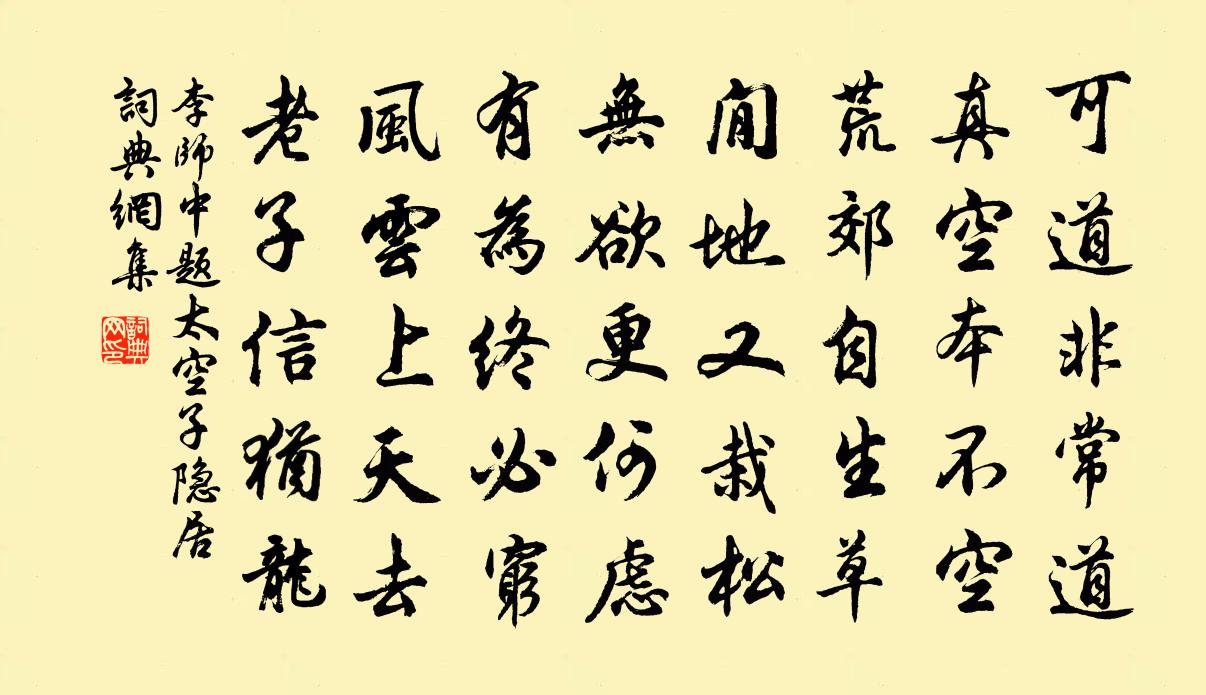 可道非常道
真空本不空
荒郊自生草
閒地又栽松
無欲更何慮
有為終必窮
風雲上天去
老子信猶龍
李師中題太空子隐居
詞典網集
詞典网印